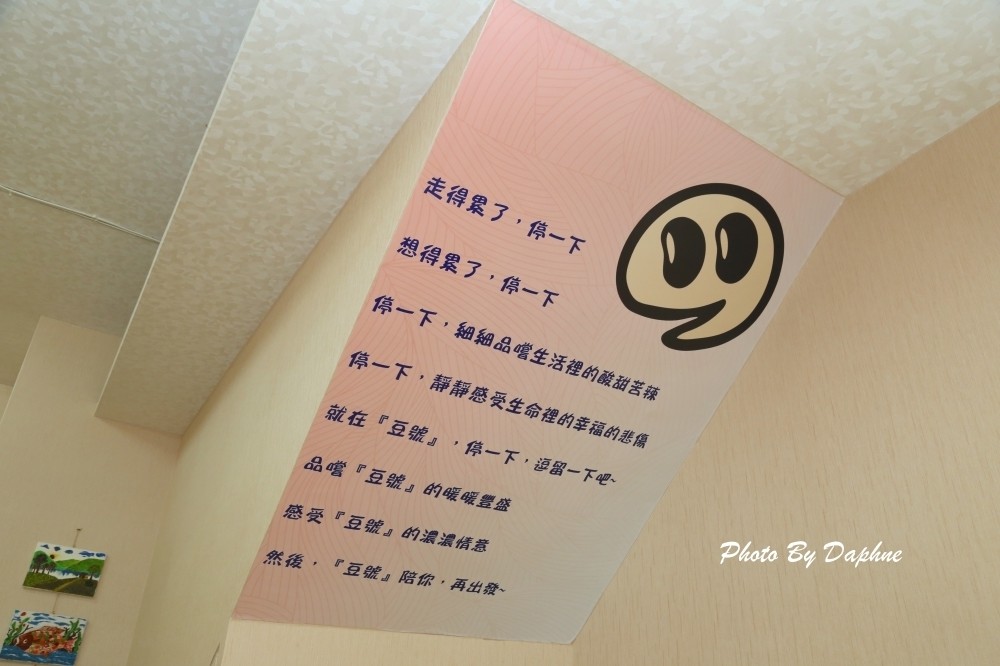 走得累了，停一下
想得累了，停一下
停一下，細細品嚐生活裡的酸甜苦辣
停一下，靜靜感受生命裡的幸福的悲傷
就在『豆號』，停一下，逗留一下吧~
品嚐『豆號』的暖暖豐盛
感受『豆號』的濃濃情意
然後，『豆號』陪你，再出發~
Photo By Daphne